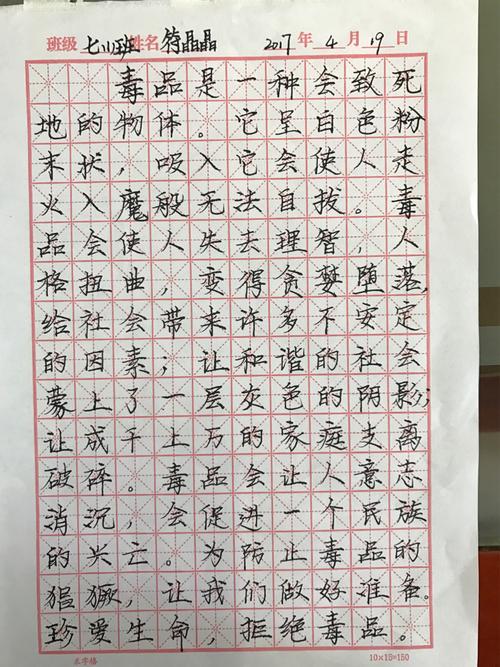 班级 七(1)班 姓名 符晶晶 2017 年 4 月 19 日
毒品是一种会致死
地的物体。它呈白色粉
末状，吸入它会使人走
火入魔般无法自拔。毒
品会使人失去理智，人
格扭曲，变得贪婪堕落，
给社会带来许多不安定
的因素；让和谐的社会
蒙上了一层灰色的阴影；
让成千上万的家庭支离
破碎。毒品会让人意志
消沉，会促进一个民族
的兴亡。为防止毒品的
猖獗，让我们做好准备。
珍爱生命，拒绝毒品。
米字格 10×15=150